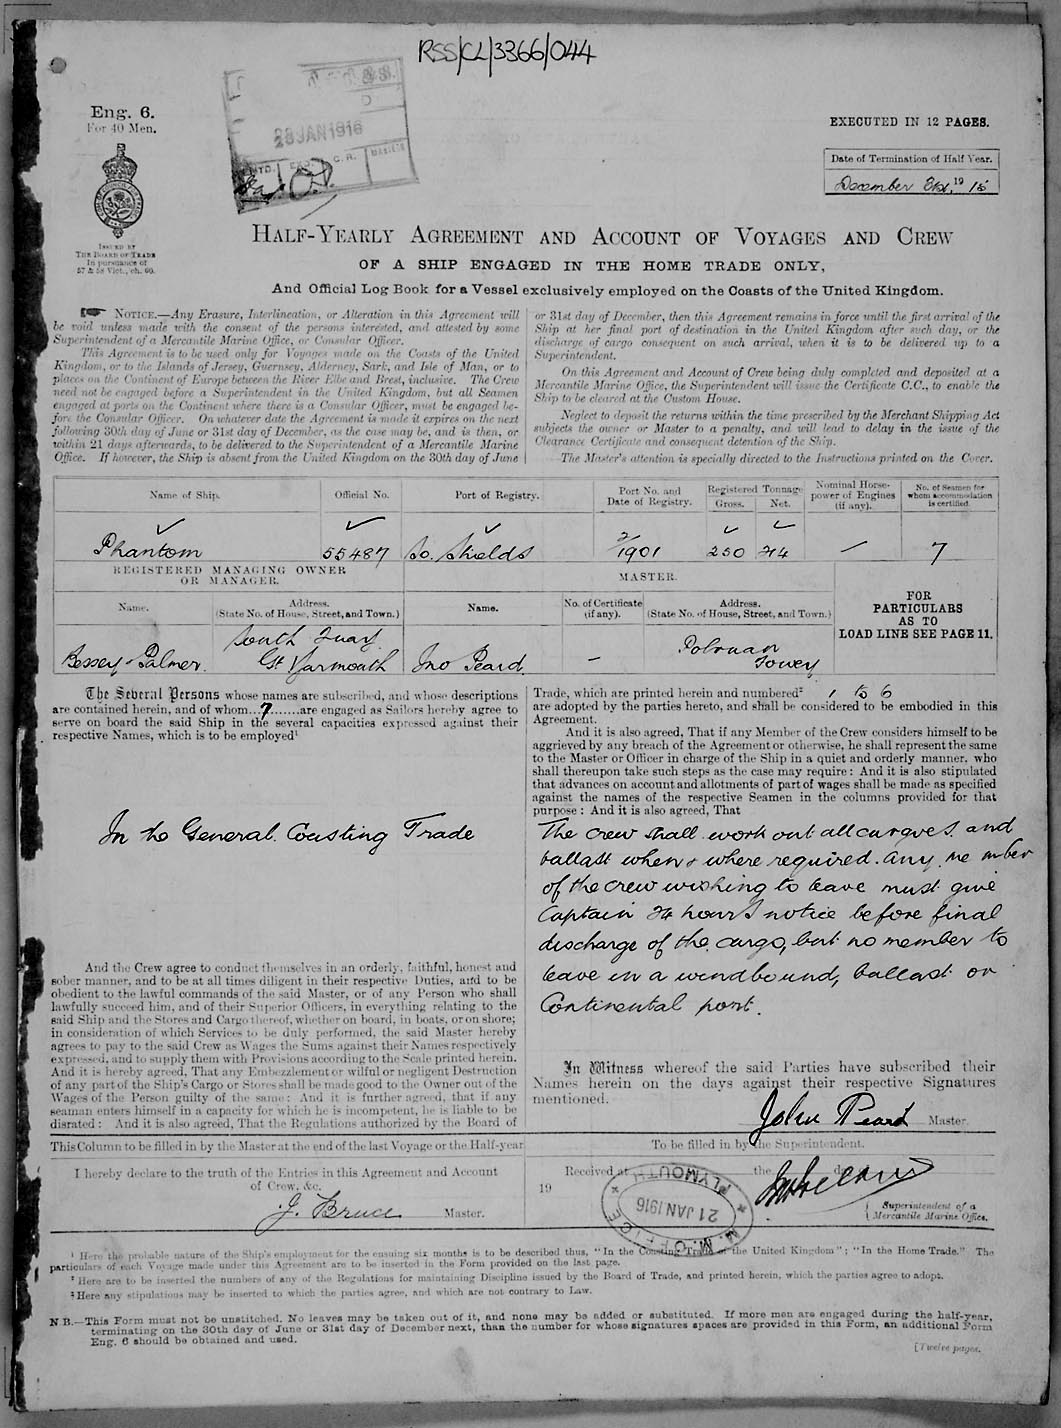 RSS/CL/3366/044
Eng. 6.
For 40 Men.
28 JAN 1916
EXECUTED IN 12 PAGES.
Date of Termination of Half Year.
December 31st, 19 15
ISSUED BY
THE BOARD OF TRADE
In pursuance of
57 & 58 Vict., ch. 60.
HALF-YEARLY AGREEMENT AND ACCOUNT OF VOYAGES AND CREW
OF A SHIP ENGAGED IN THE HOME TRADE ONLY,
And Official Log Book for a Vessel exclusively employed on the Coasts of the United Kingdom.
NOTICE.—Any Erasure, Interlineation, or Alteration in this Agreement will
be void unless made with the consent of the persons interested, and attested by some
Superintendent of a Mercantile Marine Office, or Consular Officer.
This Agreement is to be used only for Voyages made on the Coasts of the United
Kingdom, or to the Islands of Jersey, Guernsey, Alderney, Sark, and Isle of Man, or to
places on the Continent of Europe between the River Elbe and Brest, inclusive. The Crew
need not be engaged before a Superintendent in the United Kingdom, but all Seamen
engaged at ports on the Continent where there is a Consular Officer, must be engaged be-
fore the Consular Officer. On whatever date the Agreement is made it expires on the next
following 30th day of June or 31st day of December, as the case may be, and is then, or
within 21 days afterwards, to be delivered to the Superintendent of a Mercantile Marine
Office. If however, the Ship is absent from the United Kingdom on the 30th day of June
or 31st day of December, then this Agreement remains in force until the first arrival of the
Ship at her final port of destination in the United Kingdom after such day, or the
discharge of cargo consequent on such arrival, when it is to be delivered up to a
Superintendent.
On this Agreement and Account of Crew being duly completed and deposited at a
Mercantile Marine Office, the Superintendent will issue the Certificate C.C., to enable the
Ship to be cleared at the Custom House.
Neglect to deposit the returns within the time prescribed by the Merchant Shipping Act
subjects the owner or Master to a penalty, and will lead to delay in the issue of the
Clearance Certificate and consequent detention of the Ship.
The Master's attention is specially directed to the Instructions printed on the Cover.
Name of Ship. Official No. Port of Registry. Port No. and Date of Registry. Registered Tonnage Gross. Net. Nominal Horse-power of Engines (if any). No. of Seamen for whom accommodation is certified.
Phantom 55487 So. Shields 2/1901 250 214 — 7
REGISTERED MANAGING OWNER OR MANAGER. MASTER.
Name. Address. (State No. of House, Street, and Town.) Name. No. of Certificate (if any). Address. (State No. of House, Street, and Town.)
FOR PARTICULARS AS TO LOAD LINE SEE PAGE 11.
Bessey & Palmer. South Quay Gt Yarmouth Jno Peard — Polruan Fowey
The Several Persons whose names are subscribed, and whose descriptions
are contained herein, and of whom...7......are engaged as Sailors hereby agree to
serve on board the said Ship in the several capacities expressed against their
respective Names, which is to be employed¹
In the General Coasting Trade
And the Crew agree to conduct themselves in an orderly, faithful, honest and
sober manner, and to be at all times diligent in their respective Duties, and to be
obedient to the lawful commands of the said Master, or of any Person who shall
lawfully succeed him, and of their Superior Officers, in everything relating to the
said Ship and the Stores and Cargo thereof, whether on board, in boats, or on shore;
in consideration of which Services to be duly performed, the said Master hereby
agrees to pay to the said Crew as Wages the Sums against their Names respectively
expressed, and to supply them with Provisions according to the Scale printed herein.
And it is hereby agreed, That any Embezzlement or wilful or negligent Destruction
of any part of the Ship's Cargo or Stores shall be made good to the Owner out of the
Wages of the Person guilty of the same: And it is further agreed, that if any
seaman enters himself in a capacity for which he is incompetent, he is liable to be
disrated: And it is also agreed, That the Regulations authorized by the Board of
Trade, which are printed herein and numbered² 1 to 6
are adopted by the parties hereto, and shall be considered to be embodied in this
Agreement.
And it is also agreed, That if any Member of the Crew considers himself to be
aggrieved by any breach of the Agreement or otherwise, he shall represent the same
to the Master or Officer in charge of the Ship in a quiet and orderly manner, who
shall thereupon take such steps as the case may require: And it is also stipulated
that advances on account and allotments of part of wages shall be made as specified
against the names of the respective Seamen in the columns provided for that
purpose: And it is also agreed, That
The crew shall work out all cargoes and
ballast when & where required. any member
of the crew wishing to leave must give
Captain 24 hours notice before final
discharge of the cargo, but no member to
leave in a windbound, ballast or
Continental port.
In Witness whereof the said Parties have subscribed their
Names herein on the days against their respective Signatures
mentioned.
John Peard Master.
This Column to be filled in by the Master at the end of the last Voyage or the Half-year
I hereby declare to the truth of the Entries in this Agreement and Account
of Crew, &c.
J. Bruce Master.
To be filled in by the Superintendent.
Received at the d
19
M. M. OFFICE PLYMOUTH
21 JAN 1916
Superintendent of a
Mercantile Marine Office.
¹ Here the probable nature of the Ship's employment for the ensuing six months is to be described thus, "In the Coasting Trade of the United Kingdom"; "In the Home Trade." The
particulars of each Voyage made under this Agreement are to be inserted in the Form provided on the last page.
² Here are to be inserted the numbers of any of the Regulations for maintaining Discipline issued by the Board of Trade, and printed herein, which the parties agree to adopt.
³ Here any stipulations may be inserted to which the parties agree, and which are not contrary to Law.
N.B.—This Form must not be unstitched. No leaves may be taken out of it, and none may be added or substituted. If more men are engaged during the half-year,
terminating on the 30th day of June or 31st day of December next, than the number for whose signatures spaces are provided in this Form, an additional Form
Eng. 6 should be obtained and used.
[Twelve pages.